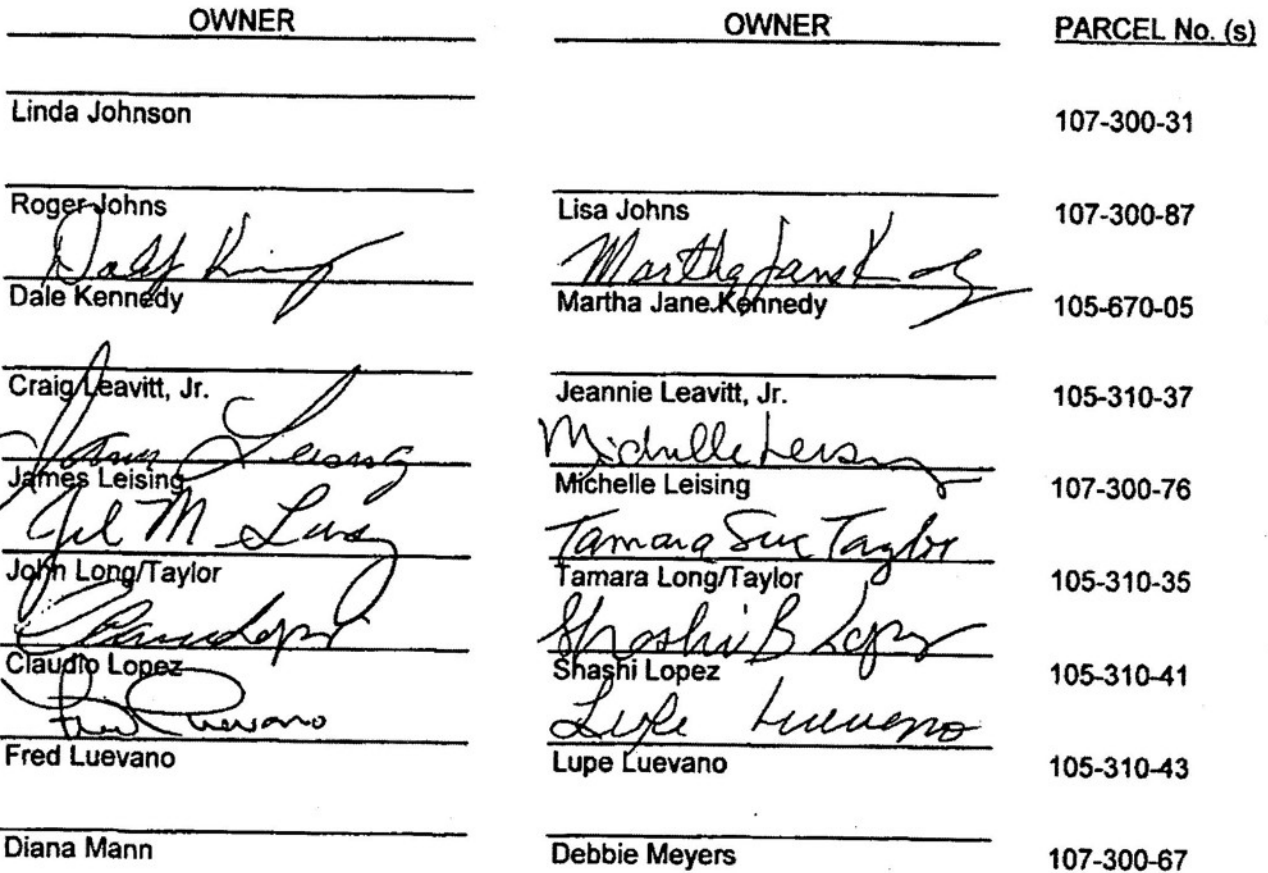 OWNER OWNER PARCEL No. (s)
Linda Johnson 107-300-31
Roger Johns Lisa Johns 107-300-87
Martha Jane
Dale Kennedy Martha Jane Kennedy 105-670-05
Craig Leavitt, Jr. Jeannie Leavitt, Jr. 105-310-37
James Leising Michelle Leising
James Leising Michelle Leising 107-300-76
Tamara Sue Taylor
John Long/Taylor Tamara Long/Taylor 105-310-35
Shashi B Lopez
Claudio Lopez Shashi Lopez 105-310-41
Fred Luevano Lupe Luevano
Fred Luevano Lupe Luevano 105-310-43
Diana Mann Debbie Meyers 107-300-67